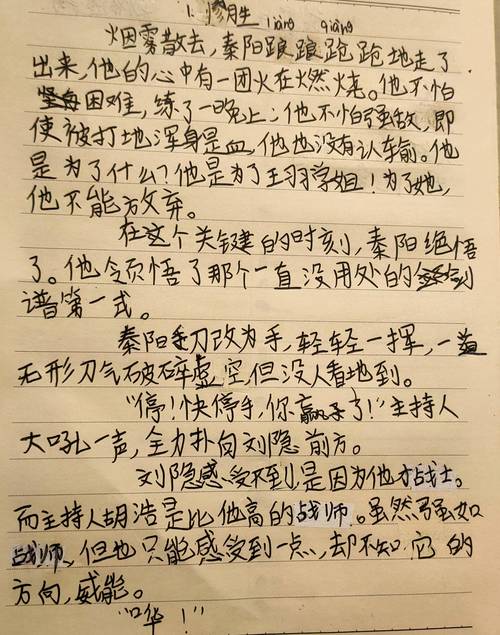 1. 惨胜
liàng qiàng
烟雾散去，秦阳踉踉跄跄地走了
出来，他的心中有一团火在燃烧。他不怕
困难，练了一晚上；他不怕强敌，即
使被打地浑身是血，他也没有认输。他
是为了什么？他是为了王羽学姐！为了她，
他不能放弃。
在这个关键的时刻，秦阳绝悟
了。他领悟了那个一直没用处的剑
谱第一式。
秦阳手刀改为手，轻轻一挥，一道
无形刀气破碎虚空，但没人看地到。
“停！快停手，你赢了！”主持人
大吼一声，全力扑向刘隐前方。
刘隐感受不到是因为他才战士。
而主持人胡浩是比他高的战师。虽然强如
战师，但也只能感受到一点，却不知它的
方向，威能。
“哗！”